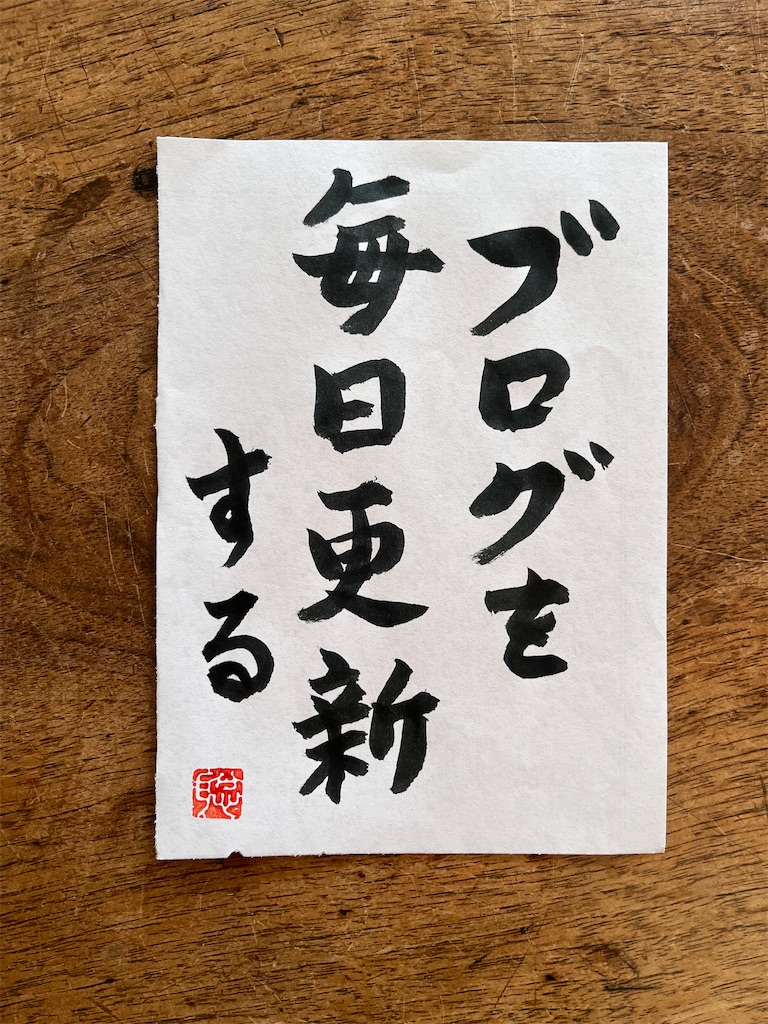 ブログを
毎日更新
する